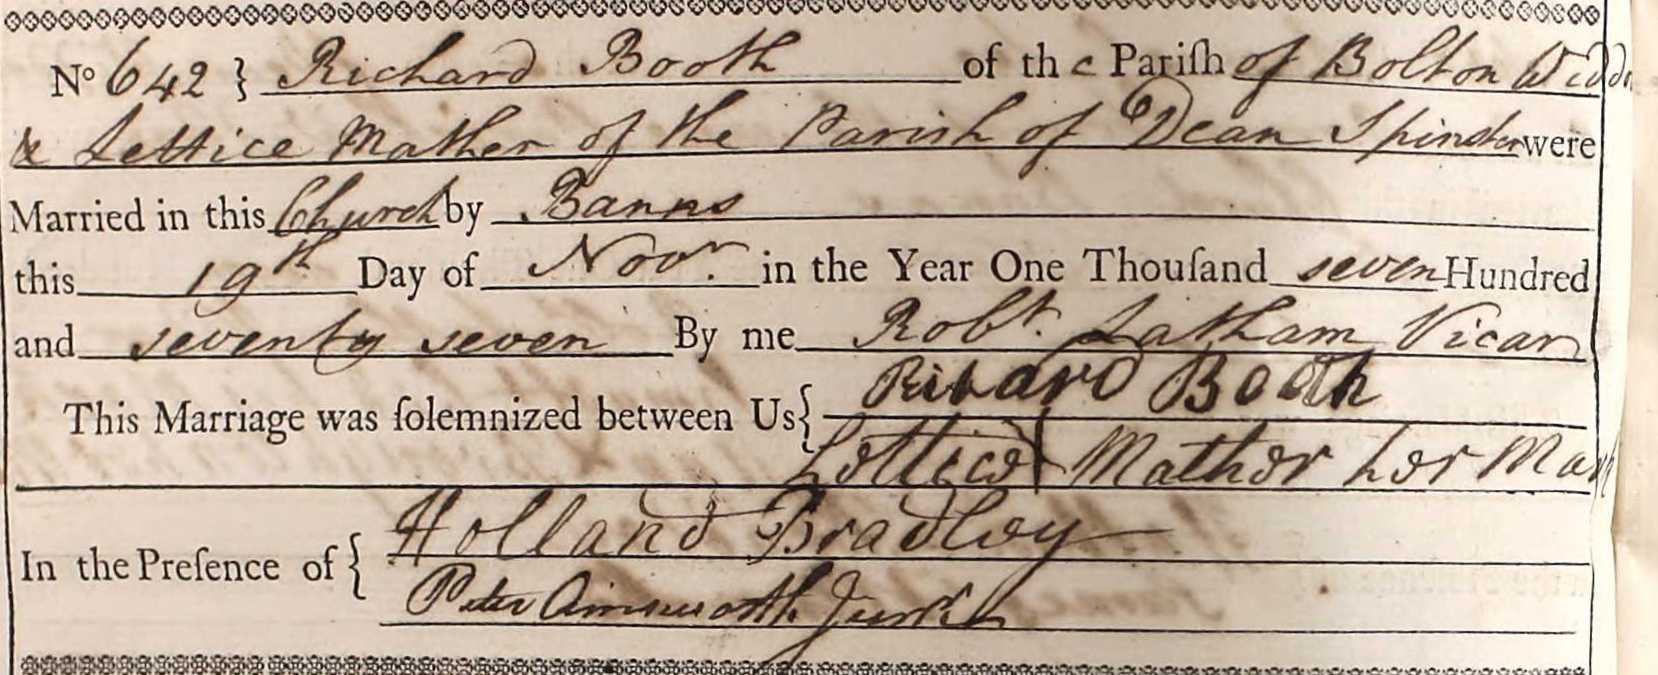 No 642 } Richard Booth of the Pariſh of Bolton Widdr
& Lettice Mather of the Parish of Dean Spinster were
Married in this Church by Banns
this 19th Day of Novr. in the Year One Thouſand seven Hundred
and seventy seven By me Robt. Latham Vicar
This Marriage was ſolemnized between Us { Richard Booth
Lettice + Mather her Mark
In the Preſence of { Holland Bradley
Peter Ainsworth